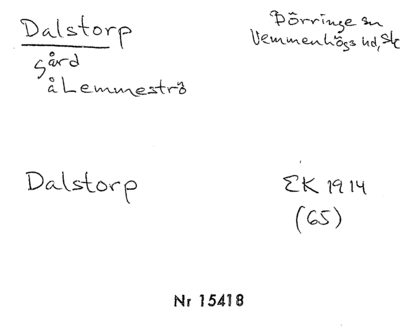 Dalstorp
Börringe sn
Vemmenhögs hd, Sk
gård
å Lemmeströ
Dalstorp
EK 1914
(65)
Nr 15418